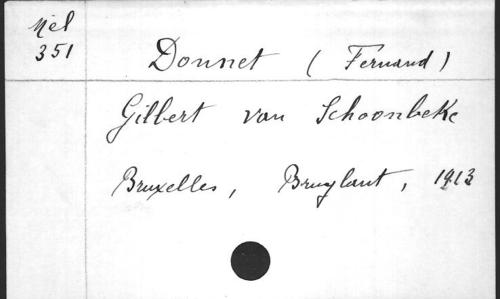 Mél
351
Donnet (Fernand)
Gilbert van Schoonbeke
Bruxelles, Bruylant, 1913